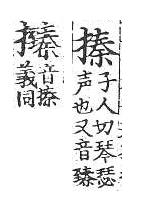 搸
子人切琴瑟
声也又音臻
音搸
義同